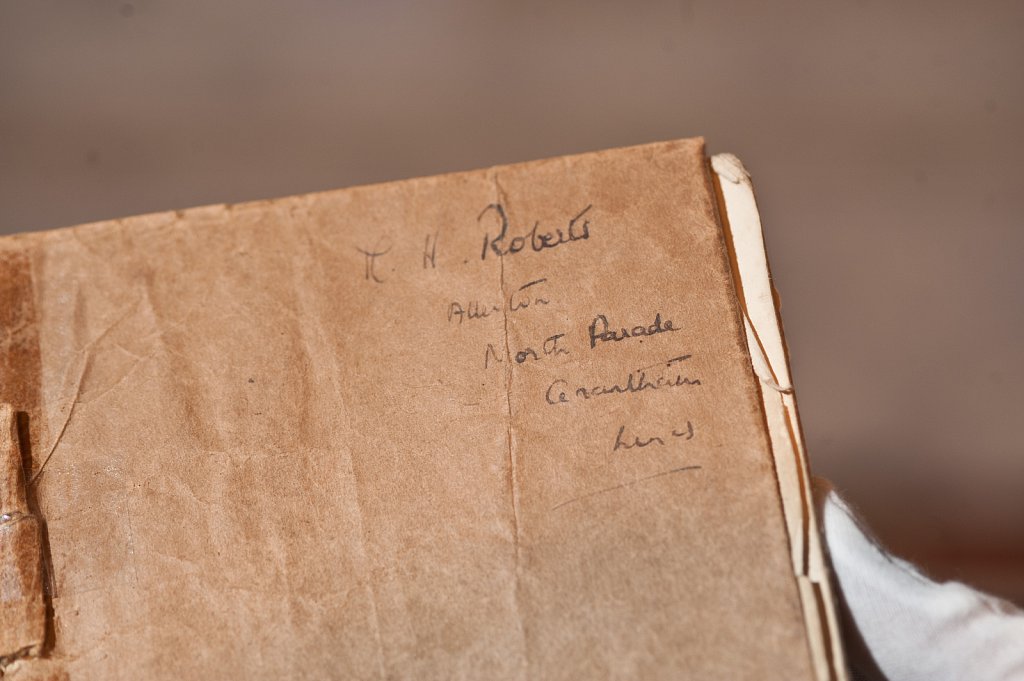 M. H. Roberts
Allerton
North Parade
Grantham
Lincs